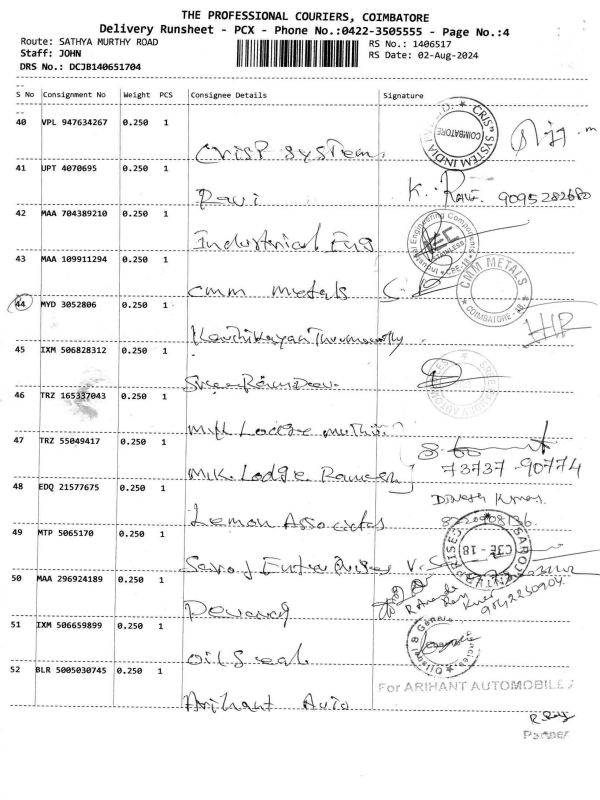 THE PROFESSIONAL COURIERS, COIMBATORE
Delivery Runsheet - PCX - Phone No.:0422-3505555 - Page No.:4
Route: SATHYA MURTHY ROAD
Staff: JOHN
DRS No.: DCJB140651704
RS No.: 1406517
RS Date: 02-Aug-2024
S No Consignment No Weight PCS Consignee Details Signature
40 VPL 947634267 0.250 1
Crisp System
CRIS SYSTEM INDIA COIMBATORE
41 UPT 4070695 0.250 1
Ravi K. Ravi 9095282680
42 MAA 704389210 0.250 1
Industrial Eng
Engineering Components
43 MAA 109911294 0.250 1
Cmm metals
CMM METALS COIMBATORE - 18
44 MYD 3052806 0.250 1
45 IXM 506828312 0.250 1
46 TRZ 165337043 0.250 1
Mill Lodge
47 TRZ 55049417 0.250 1
M.K. Lodge Ramesh
73737 - 90774
48 EDQ 21577675 0.250 1
Lemon Associates
Dinesh Kumar
8220908136
49 MTP 5065170 0.250 1
Saroj Enterprises V.
SAROJ ENTERPRISES CBE - 18
50 MAA 296924189 0.250 1
Devaraj
9042250904
51 IXM 506659899 0.250 1
Oil Seal
52 BLR 5005030745 0.250 1
Arihant Auto
For ARIHANT AUTOMOBILE
Partner